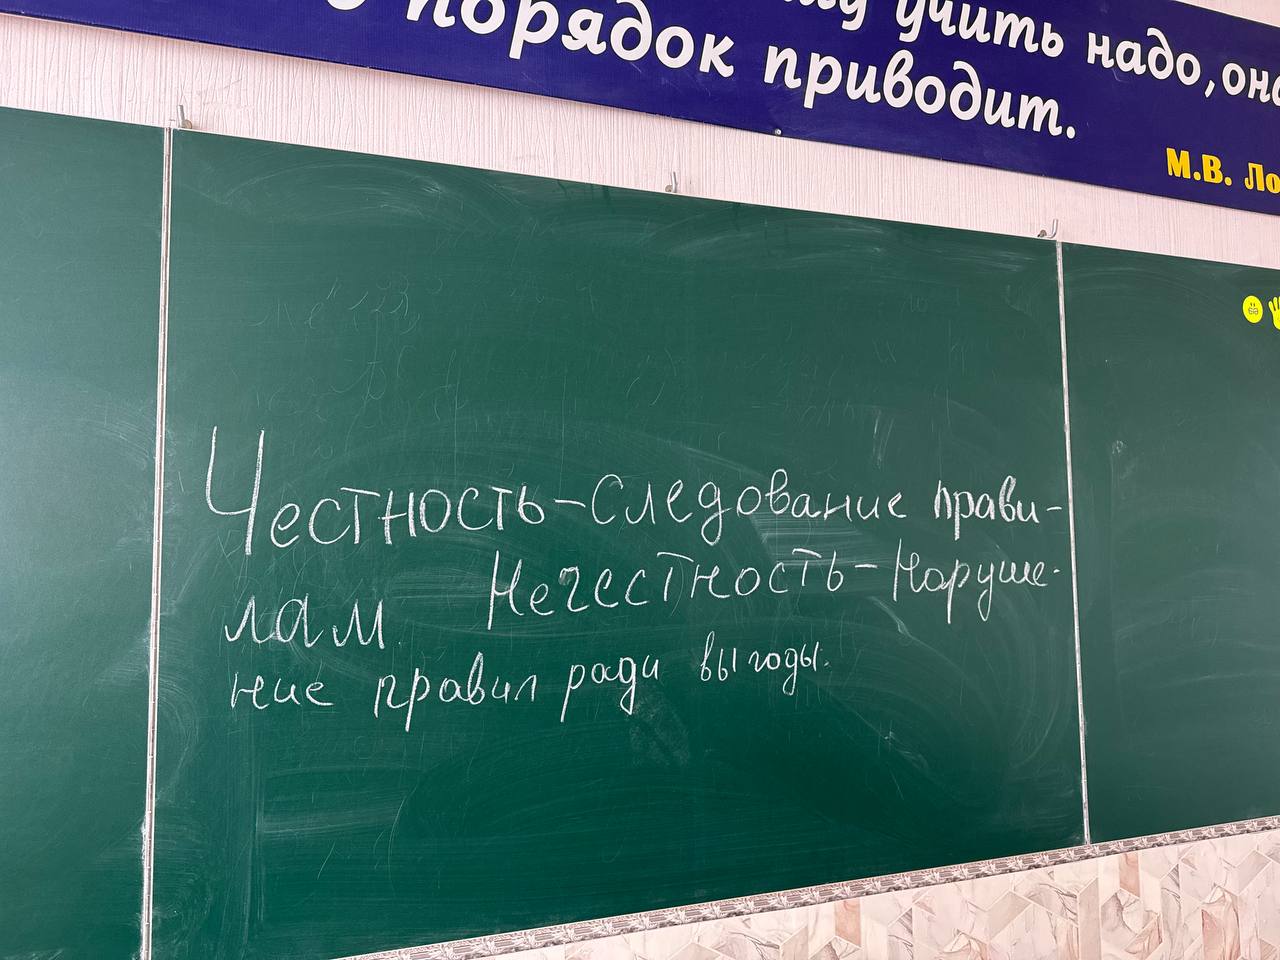 учить надо, она
порядок приводит.
М.В. Ло
Честность-Следование прави-
лам. Нечестность-Наруше-
ние правил ради выгоды.